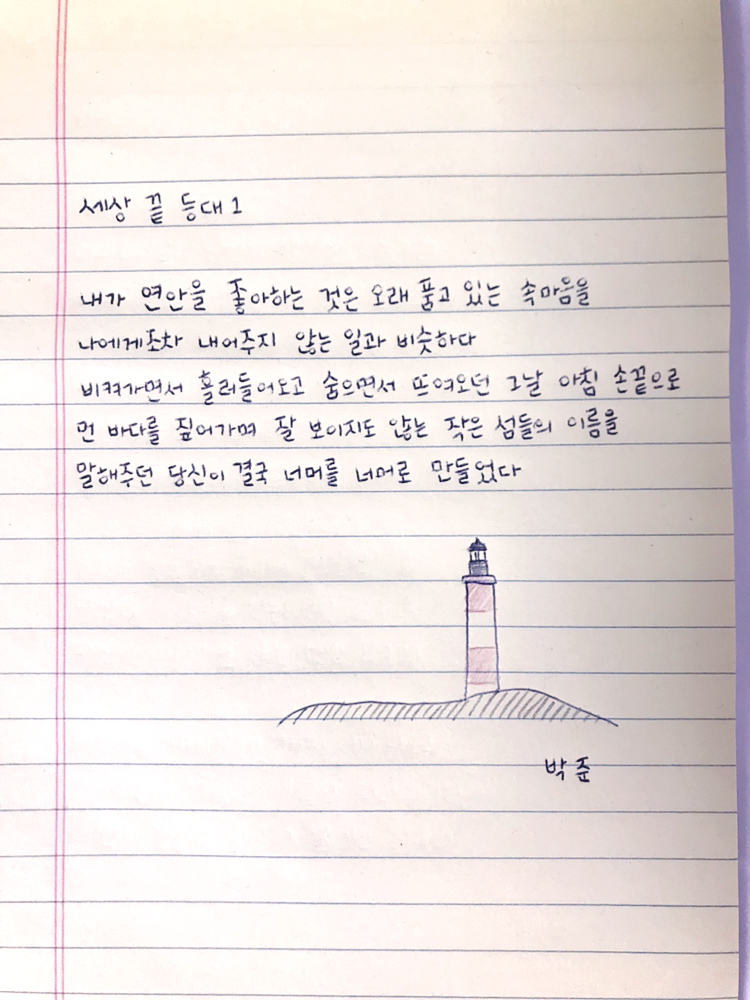 세상 끝 등대 1
내가 연안을 좋아하는 것은 오래 품고 있는 속마음을
나에게조차 내어주지 않는 일과 비슷하다
비켜가면서 흘러들어오고 숨으면서 뜨여오던 그날 아침 손끝으로
먼 바다를 짚어가며 잘 보이지도 않는 작은 섬들의 이름을
말해주던 당신이 결국 너머를 너머로 만들었다
박준